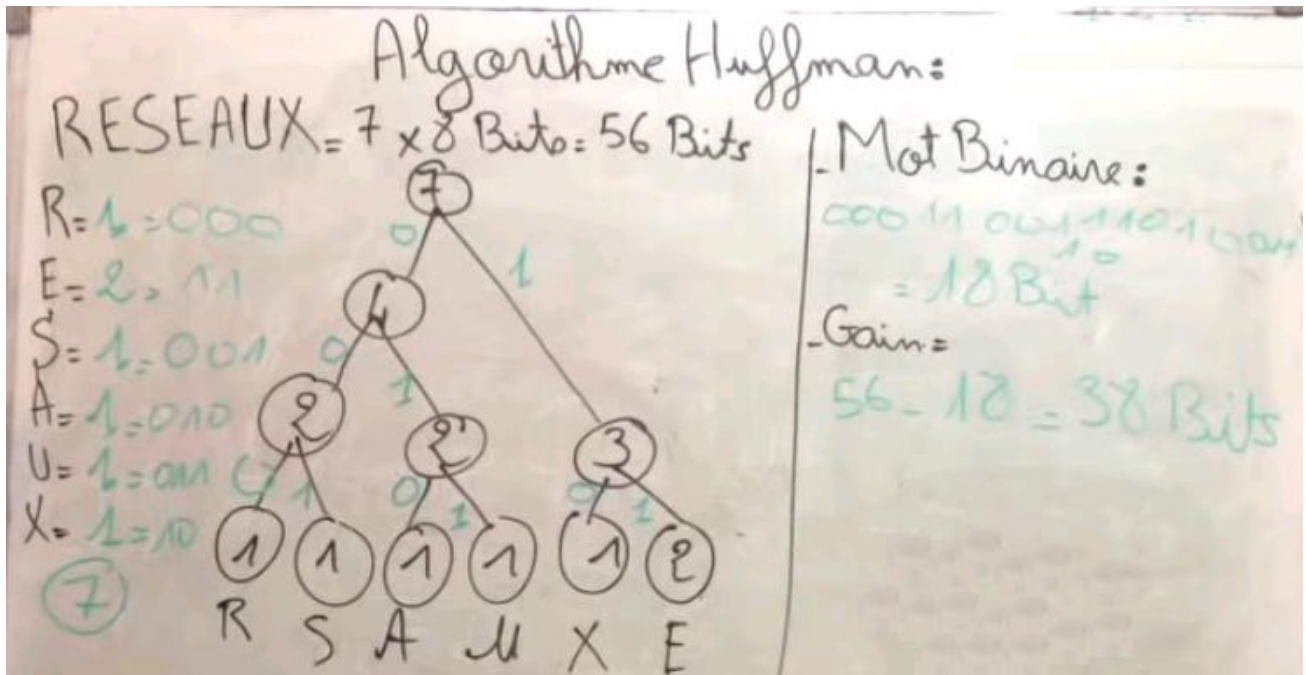 Algorithme Huffman:
RESEAUX = 7 x 8 Bits = 56 Bits
R = 1 = 000
E = 2 = 11
S = 1 = 001
A = 1 = 010
U = 1 = 011
X = 1 = 10
7
7
0 1
4
0 1
2 2 3
0 1 0 1 0 1
1 1 1 1 1 2
R S A U X E
- Mot Binaire:
10
= 18 Bit
- Gain =
56 - 18 = 38 Bits